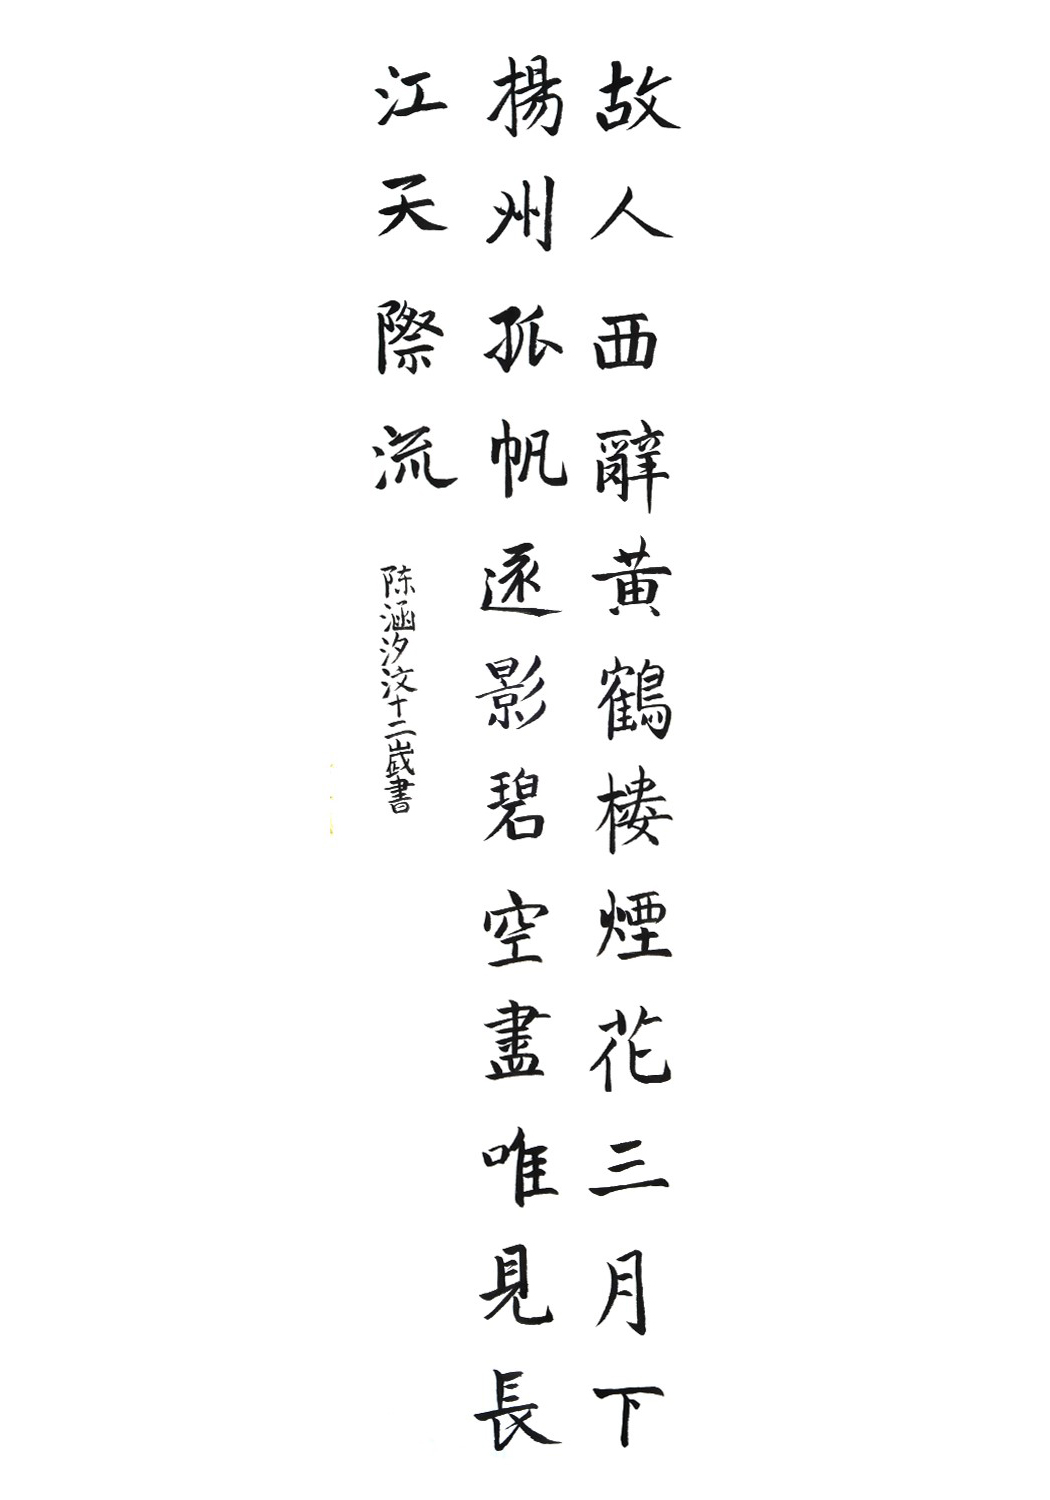 故人西辭黄鶴楼煙花三月下
揚州孤帆逐影碧空盡唯見長
江天際流
陈涵汐汶十二歲書